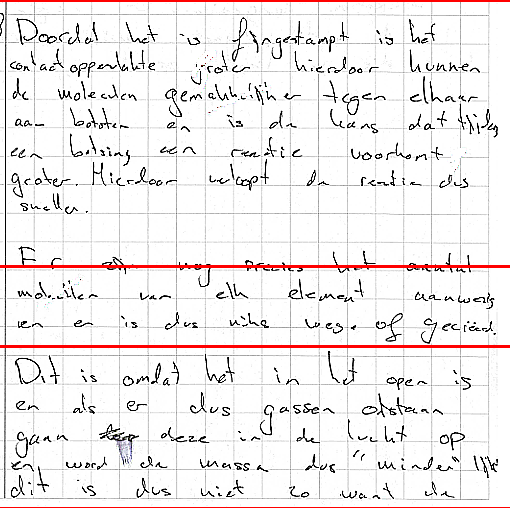 Doordat het is fijngestampt is het
contactoppervlakte groter hierdoor kunnen
de moleculen gemakkelijker tegen elkaar
aan botsten en is de kans dat tijdens
een botsing een reactie voorkomt
groter. Hierdoor verloopt de reactie dus
sneller.
Er nog precies het aantal
moleculen van elk element aanwezig
en er is dus niks weg of gecreëerd.
Dit is omdat het in het open is
en als er dus gassen ontstaan
gaan deze in de lucht op
en word de massa dus "minder" lijkt
dit is dus niet zo want de